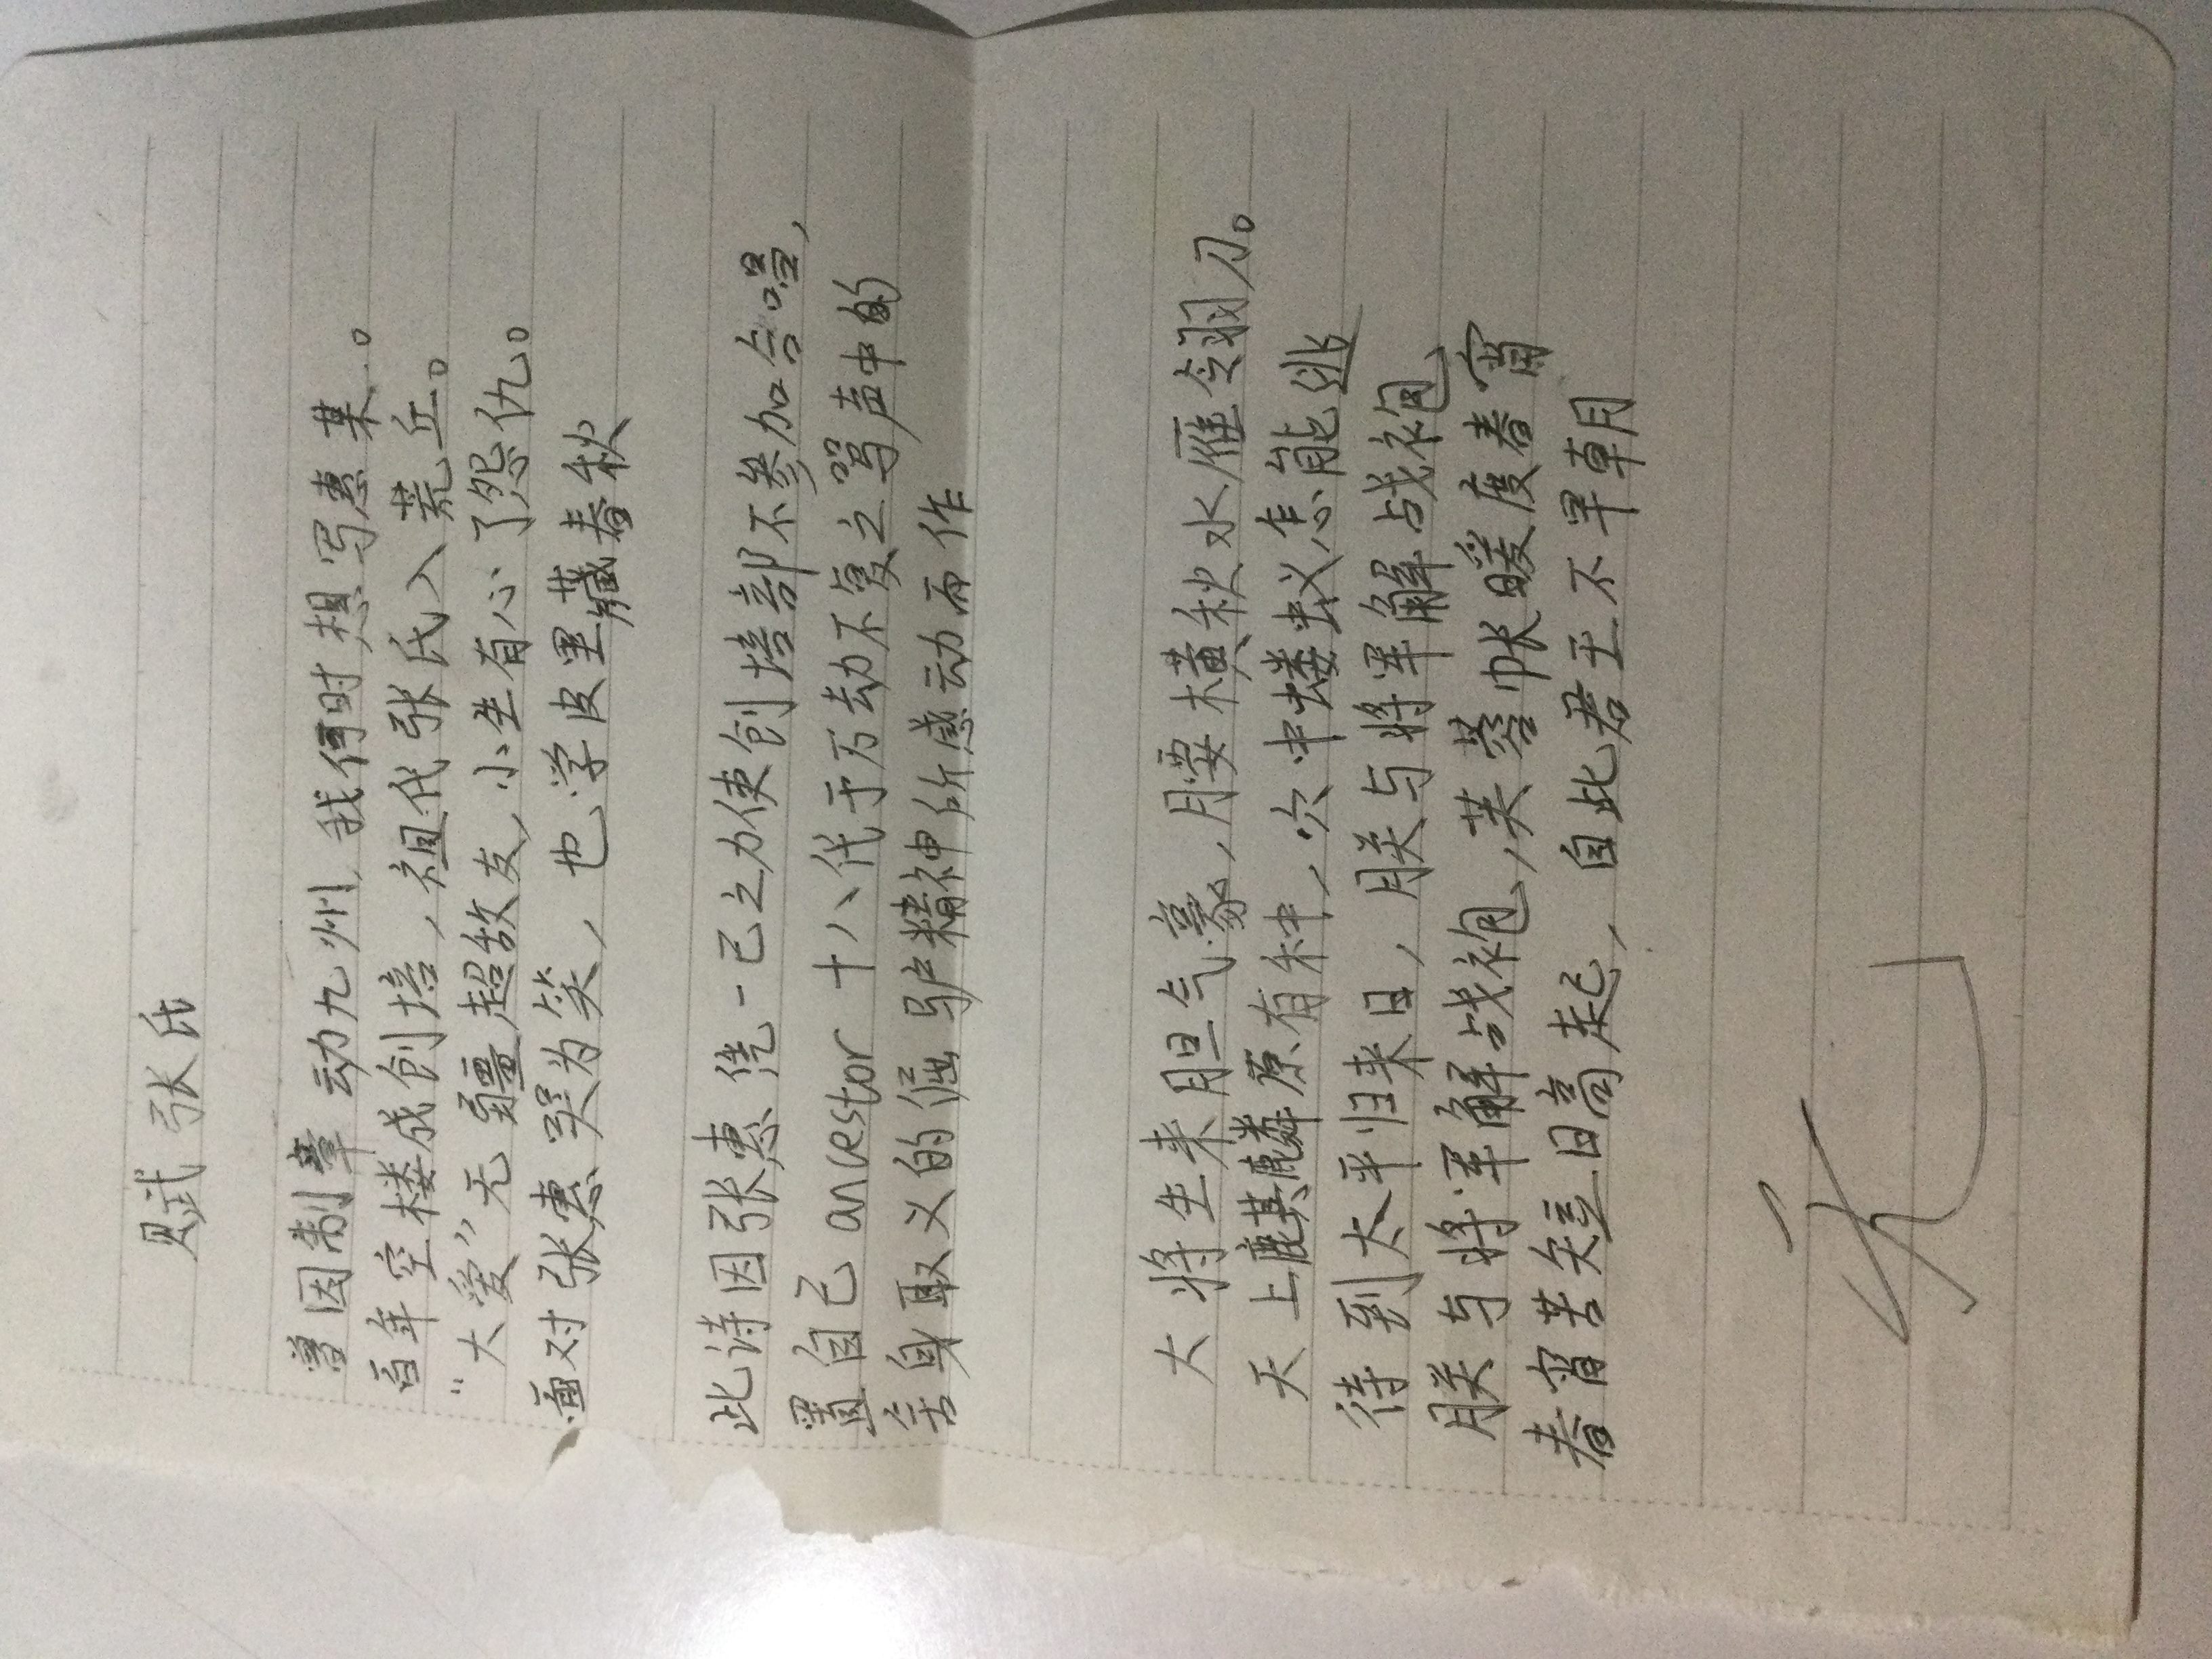 赋张氏
曾因制章动九州,我何时想写惠某.。
百年空楼成创培,祖代张氏入荒丘。
“大爱”无疆超敌友,小生有心了怨仇。
面对张惠哭为笑,也学皮里藏春秋
此诗因张惠凭一己之力使创培部不参加合唱,
置自己 ancestor 十八代于万劫不复之骂声中的
舍身取义的倔驴精神所感动而作
大将生来胆气豪,腰横秋水雁翎刀。
天上麒麟原有种,穴中蝼蚁怎能逃
待到太平归来日,朕与将军解战袍
朕与将军解战袍,芙蓉帐暖度春宵
春宵苦短日高起,自此君王不早朝